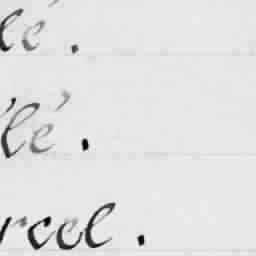 lé.
'lé.
rcel.